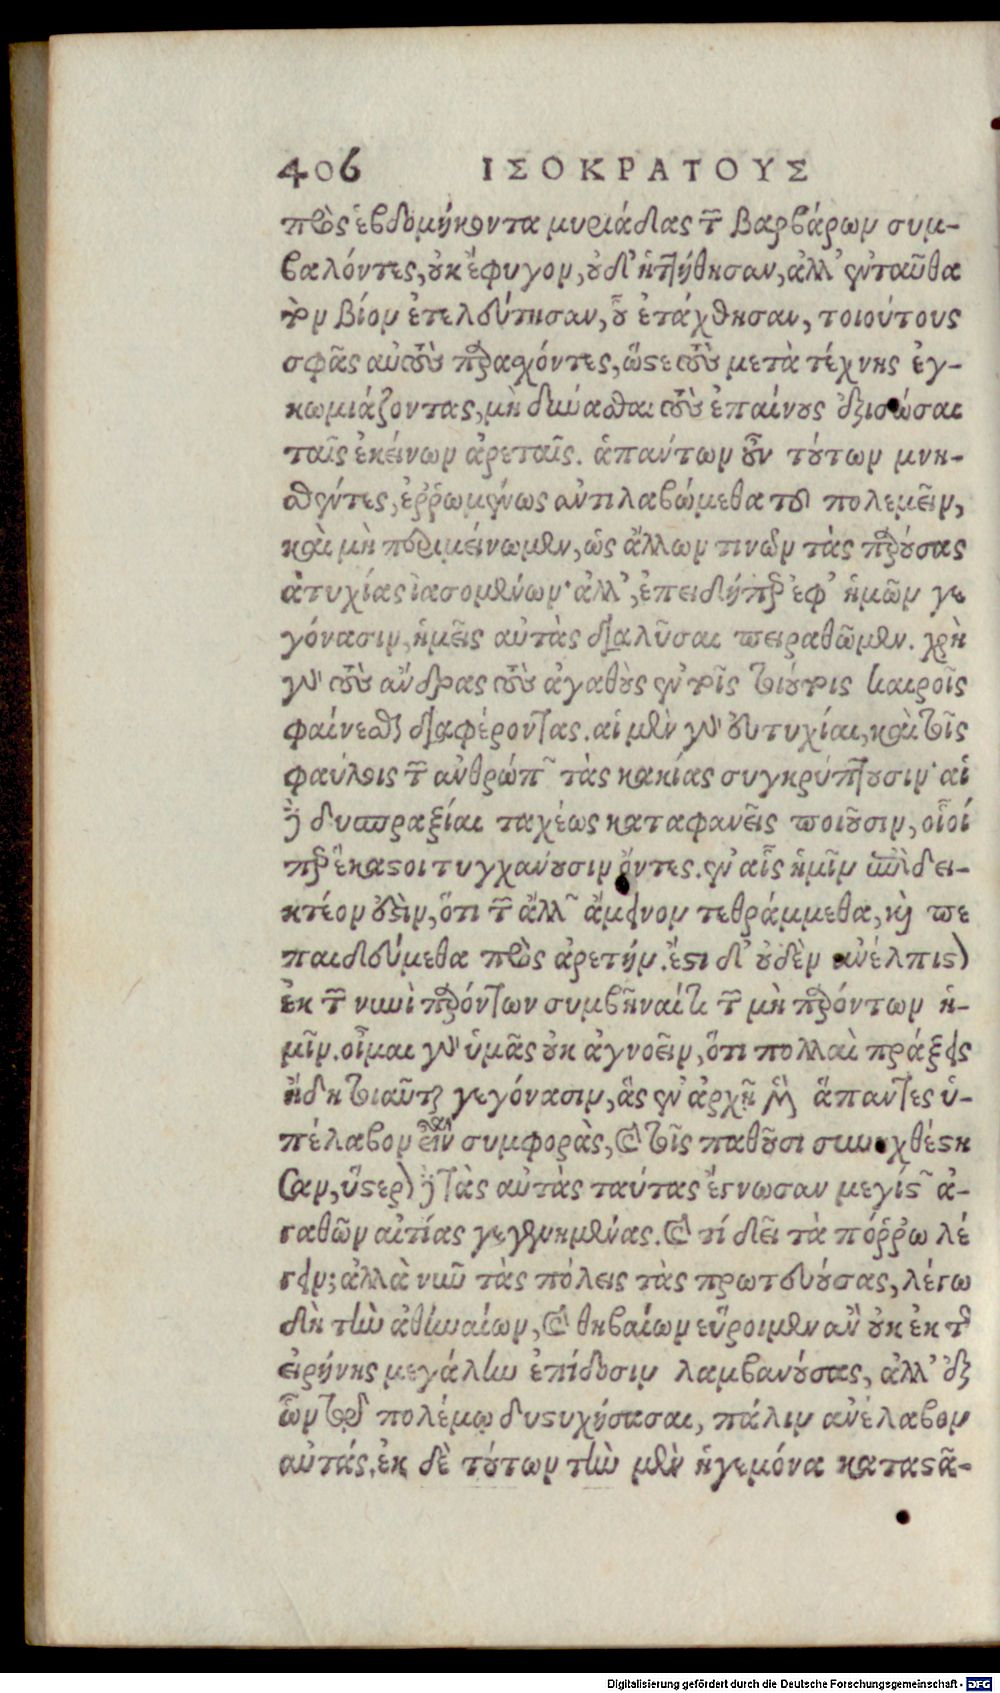 406 ΙΣΟΚΡΑΤΟΥΣ
πρὸς ἑβδομήκοντα μυριάδας τῶν βαρβάρων συμ-
βαλόντες, οὐκ ἔφυγον, οὐδ' ἡττήθησαν, ἀλλ' ἐνταῦθα
τὸν βίον ἐτελεύτησαν, οὗ ἐτάχθησαν, τοιούτους
σφᾶς αὐτοὺς παρασχόντες, ὥστε τοὺς μετὰ τέχνης ἐγ-
κωμιάζοντας, μὴ δύνασθαι τοὺς ἐπαίνους ἐξισῶσαι
ταῖς ἐκείνων ἀρεταῖς. ἁπάντων οὖν τούτων μνη-
σθέντες, ἐῤῥωμένως ἀντιλαβώμεθα τοῦ πολεμεῖν,
καὶ μὴ περιμείνωμεν, ὡς ἄλλων τινῶν τὰς παρούσας
ἀτυχίας ἰασομένων· ἀλλ', ἐπειδήπερ ἐφ' ἡμῶν γε
γόνασιν, ἡμεῖς αὐτὰς διαλῦσαι πειραθῶμεν. χρὴ
γὰρ τοὺς ἄνδρας τοὺς ἀγαθοὺς ἐν τοῖς τοιούτοις καιροῖς
φαίνεσθαι διαφέροντας. αἱ μὲν γὰρ εὐτυχίαι, καὶ τοῖς
φαύλοις τῶν ἀνθρώπων τὰς κακίας συγκρύπτουσιν· αἱ
δὲ δυσπραξίαι ταχέως καταφανεῖς ποιοῦσιν, οἷοί
περ ἕκαστοι τυγχάνουσιν ὄντες. ἐν αἷς ἡμῖν ἐπιδει-
κτέον ἐστὶν, ὅτι τῶν ἄλλων ἄμεινον τεθράμμεθα, καὶ πε
παιδεύμεθα πρὸς ἀρετήν. ἔστι δ' οὐδὲν ἀνέλπιστον
ἐκ τῶν νυνὶ παρόντων συμβῆναί τι τῶν μὴ παρόντων ἡ-
μῖν. οἶμαι γὰρ ὑμᾶς οὐκ ἀγνοεῖν, ὅτι πολλαὶ πράξεις
ἤδη τοιαῦται γεγόνασιν, ἃς ἐν ἀρχῇ μὲν ἅπαντες ὑ-
πέλαβον εἶναι συμφορὰς, καὶ τοῖς παθοῦσι συνηχθέστη
σαν, ὕστερον δὲ τὰς αὐτὰς ταύτας ἔγνωσαν μεγίστων ἀ-
γαθῶν αἰτίας γεγενημένας. καὶ τί δεῖ τὰ πόῤῥω λέ
γειν; ἀλλὰ νῦν τὰς πόλεις τὰς πρωτευούσας, λέγω
δὴ τὴν ἀθηναίων, καὶ θηβαίων εὕροιμεν ἂν οὐκ ἐκ τῆς
εἰρήνης μεγάλην ἐπίδοσιν λαμβανούσας, ἀλλ' ἐξ
ὧν τῷ πολέμῳ δυστυχήσασαι, πάλιν ἀνέλαβον
αὑτάς. ἐκ δὲ τούτων τὴν μὲν ἡγεμόνα καταστᾶ-
Digitalisierung gefördert durch die Deutsche Forschungsgemeinschaft - DFG